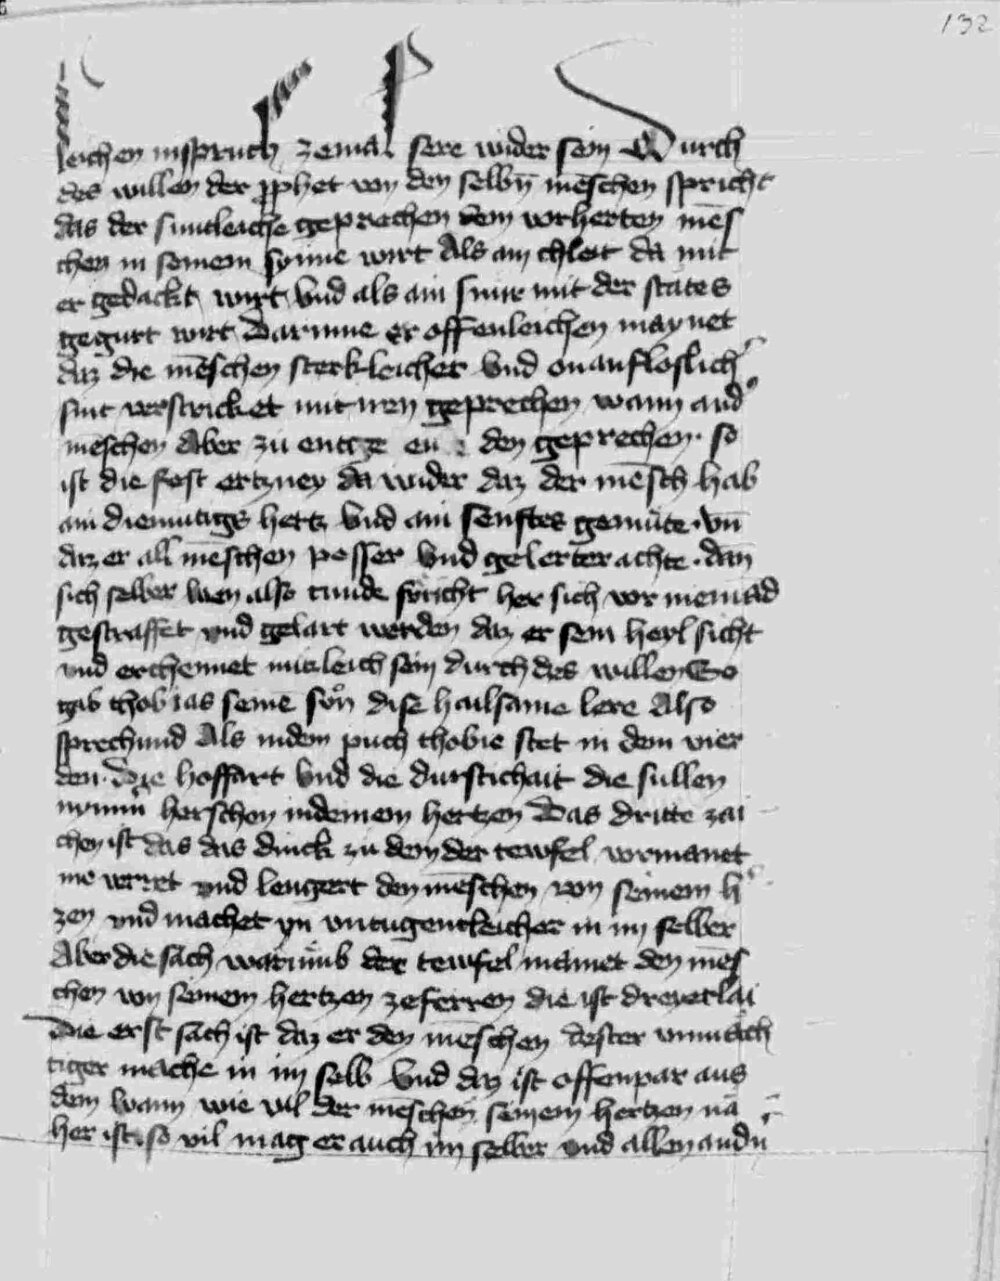 132
leichen inspruch zemal sere wider sein Durch
des willen der pphet von den selbn̄ mēschen spricht
das der suntleiche geprechen dem vorherten mēs
chen in seinem synne wirt Als ain chleit da mit
er gedackt wirt Vnd als ain snur mit der states
gegurt wirt Darinne er offenleichen maynet
daz die mēschen sterkleicher Vnd onaufloslich
sint verstricket mit iren geprechen wann and
meschen Aber zu den geprechen. so
ist die fest ertzney da wider daz der mēsch hab
ain diemutigs hertz Vnd ain senftes gemüte. vn̄
daz er all mēschen pesser Vnd gelerter achte. dan̄
sich selber wen also tunde spricht her sich vor niemād
gestraffet vnd gelart werden daz er sein heyl sicht
vnd erchennet nutzleich sein durch des willen So
gib thobias seinē son dise hailsame lere Also
sprechund Als indem puch thobie stet in dem vier
den. Die hoffart Vnd die durstichait die sullen
nymm̄ herschen indeinem hertzen Das dritte zai
chen ist das das dinck zu dem der tewfel vormanet
me verret vnd lengert den mēschen von seinem h
zen vnd machet yn vntugentleicher in im selber
Aber die sach warumb der tewfel mainet den mēs
chen von seinem hertzen ze ferren die ist dreyerlai
Die erst sach ist daz er den mēschen dester vnmäch
tiger mache in im selb Vnd daz ist offenpar aus
dem wann wie vil der mēschen seinem hertzen na
her ist. so vil mag er auch im selber vnd allen andn̄